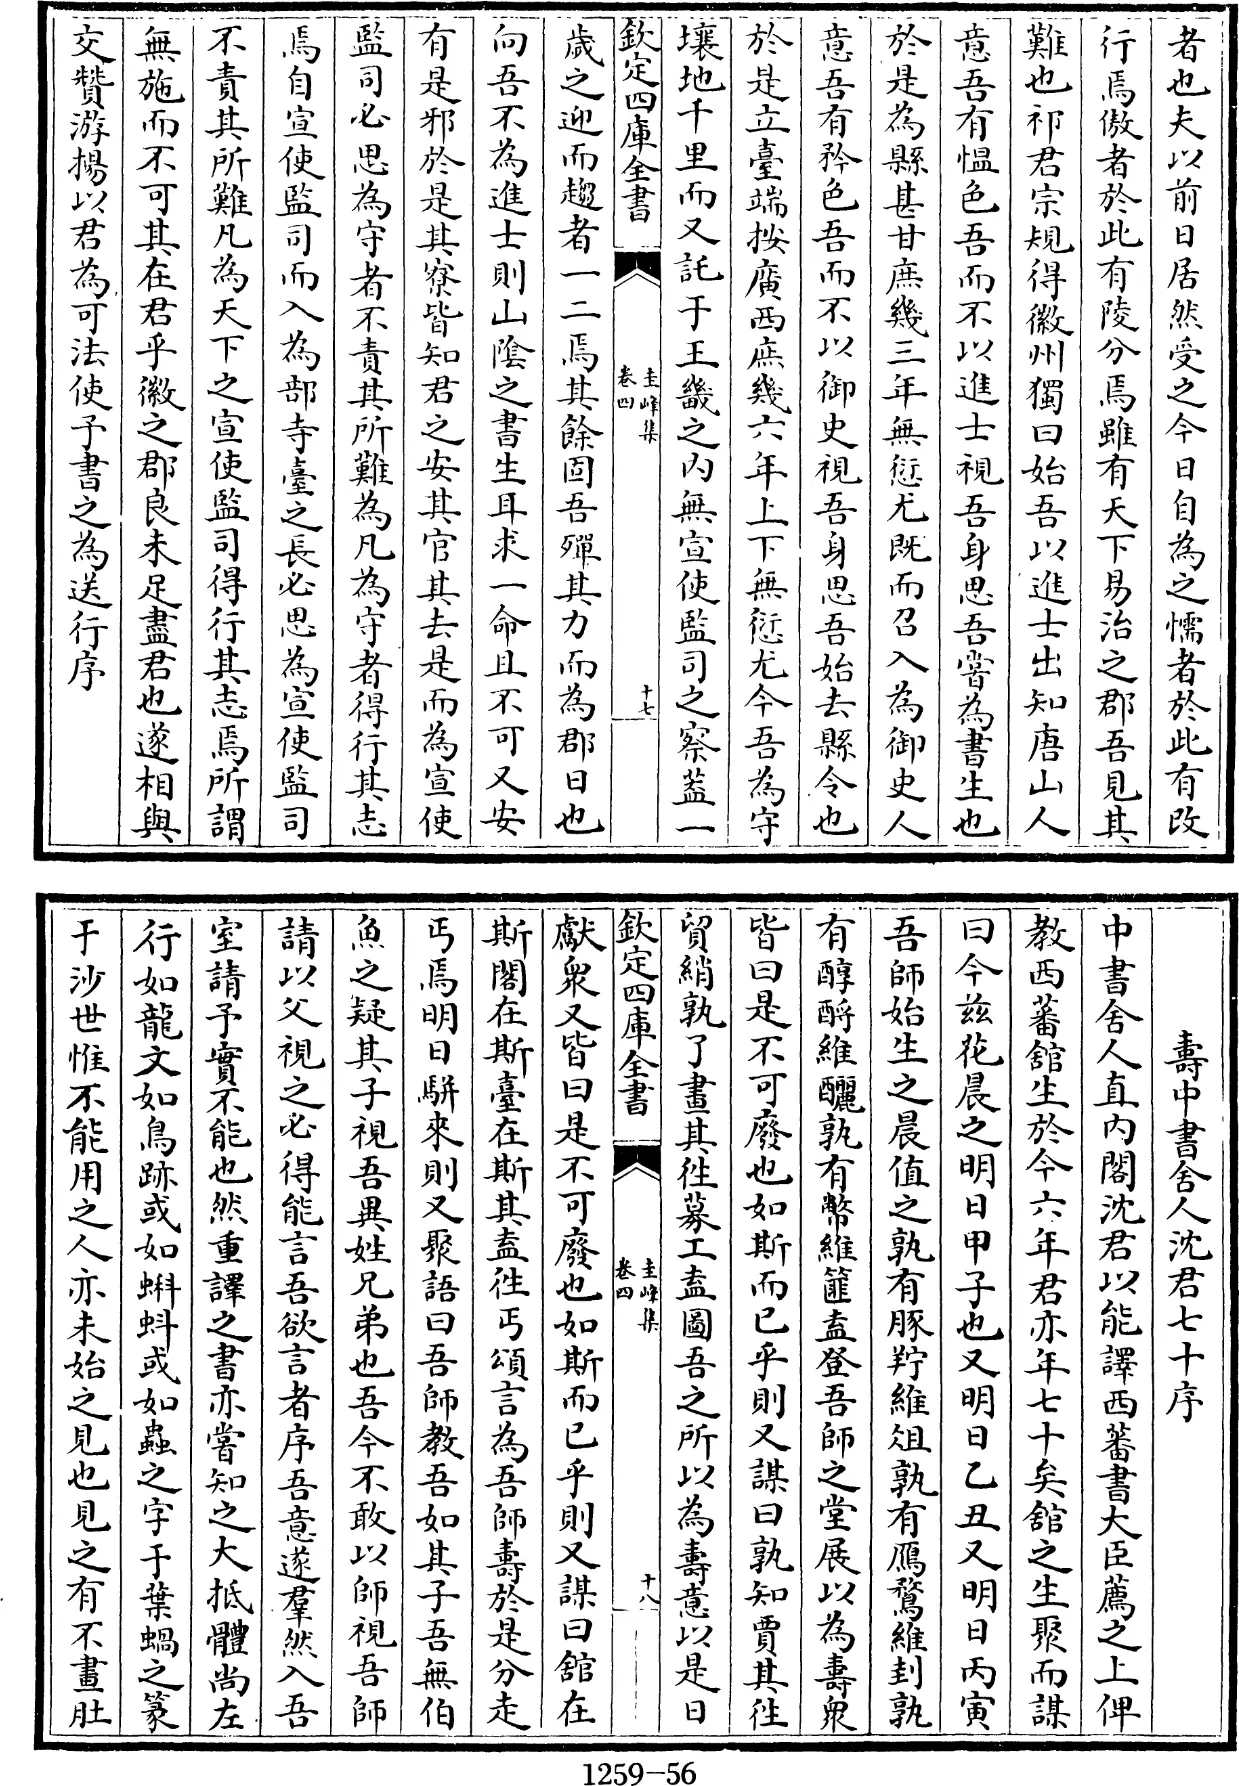 者也夫以前日居然受之今日自為之懦者於此有改
行焉傲者於此有陵分焉雖有天下易治之郡吾見其
難也祁君宗規得徽州獨曰始吾以進士出知唐山人
意吾有愠色吾而不以進士視吾身思吾嘗為書生也
於是為縣甚甘庶幾三年無愆尤既而召入為御史人
意吾有矜色吾而不以御史視吾身思吾始去縣令也
於是立臺端按廣西庶幾六年上下無愆尤今吾為守
壤地千里而又託于王畿之内無宣使監司之察葢一
欽定四庫全書
圭峰集
卷四
十七
歲之迎而趨者一二焉其餘固吾殫其力而為郡日也
向吾不為進士則山陰之書生耳求一命且不可又安
有是邪於是其寮皆知君之安其官其去是而為宣使
監司必思為守者不責其所難為凡為守者得行其志
焉自宣使監司而入為部寺臺之長必思為宣使監司
不責其所難凡為天下之宣使監司得行其志焉所謂
無施而不可其在君乎徽之郡良未足盡君也遂相與
交贊游揚以君為可法使予書之為送行序
壽中書舍人沈君七十序
中書舍人直内閣沈君以能譯西蕃書大臣薦之上俾
教西蕃舘生於今六年君亦年七十矣舘之生聚而謀
曰今兹花晨之明日甲子也又明日乙丑又明日丙寅
吾師始生之晨值之孰有豚羜維俎孰有鴈鶩維刲孰
有醇酹維釃孰有幣維篚盍登吾師之堂展以為壽衆
皆曰是不可廢也如斯而已乎則又謀曰孰知賈其徃
貿綃孰了畫其徃募工盍圖吾之所以為壽意以是日
欽定四庫全書
圭峰集
卷四
十八
獻衆又皆曰是不可廢也如斯而已乎則又謀曰舘在
斯閣在斯臺在斯其盍徃丐頌言為吾師壽於是分走
丐焉明日駢來則又聚語曰吾師教吾如其子吾無伯
魚之疑其子視吾異姓兄弟也吾今不敢以師視吾師
請以父視之必得能言吾欲言者序吾意遂羣然入吾
室請予實不能也然重譯之書亦嘗知之大抵體尚左
行如龍文如鳥跡或如蝌蚪或如蟲之字于葉蝸之篆
于沙世惟不能用之人亦未始之見也見之有不畫肚
1259-56